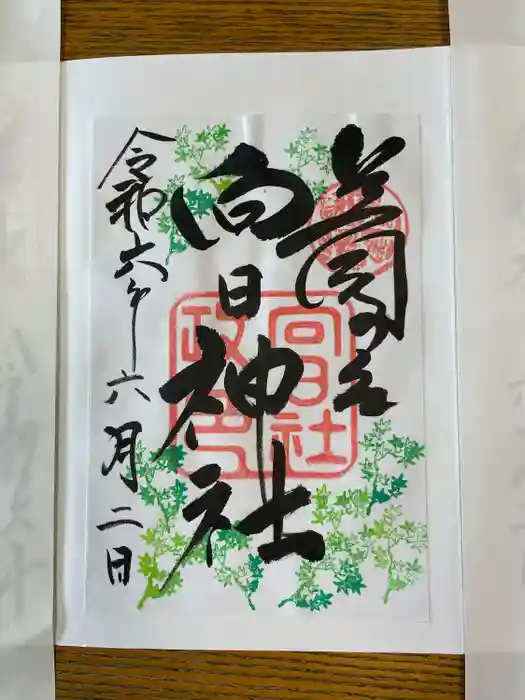 向日神社
令和六年六月二日
向日社
政印